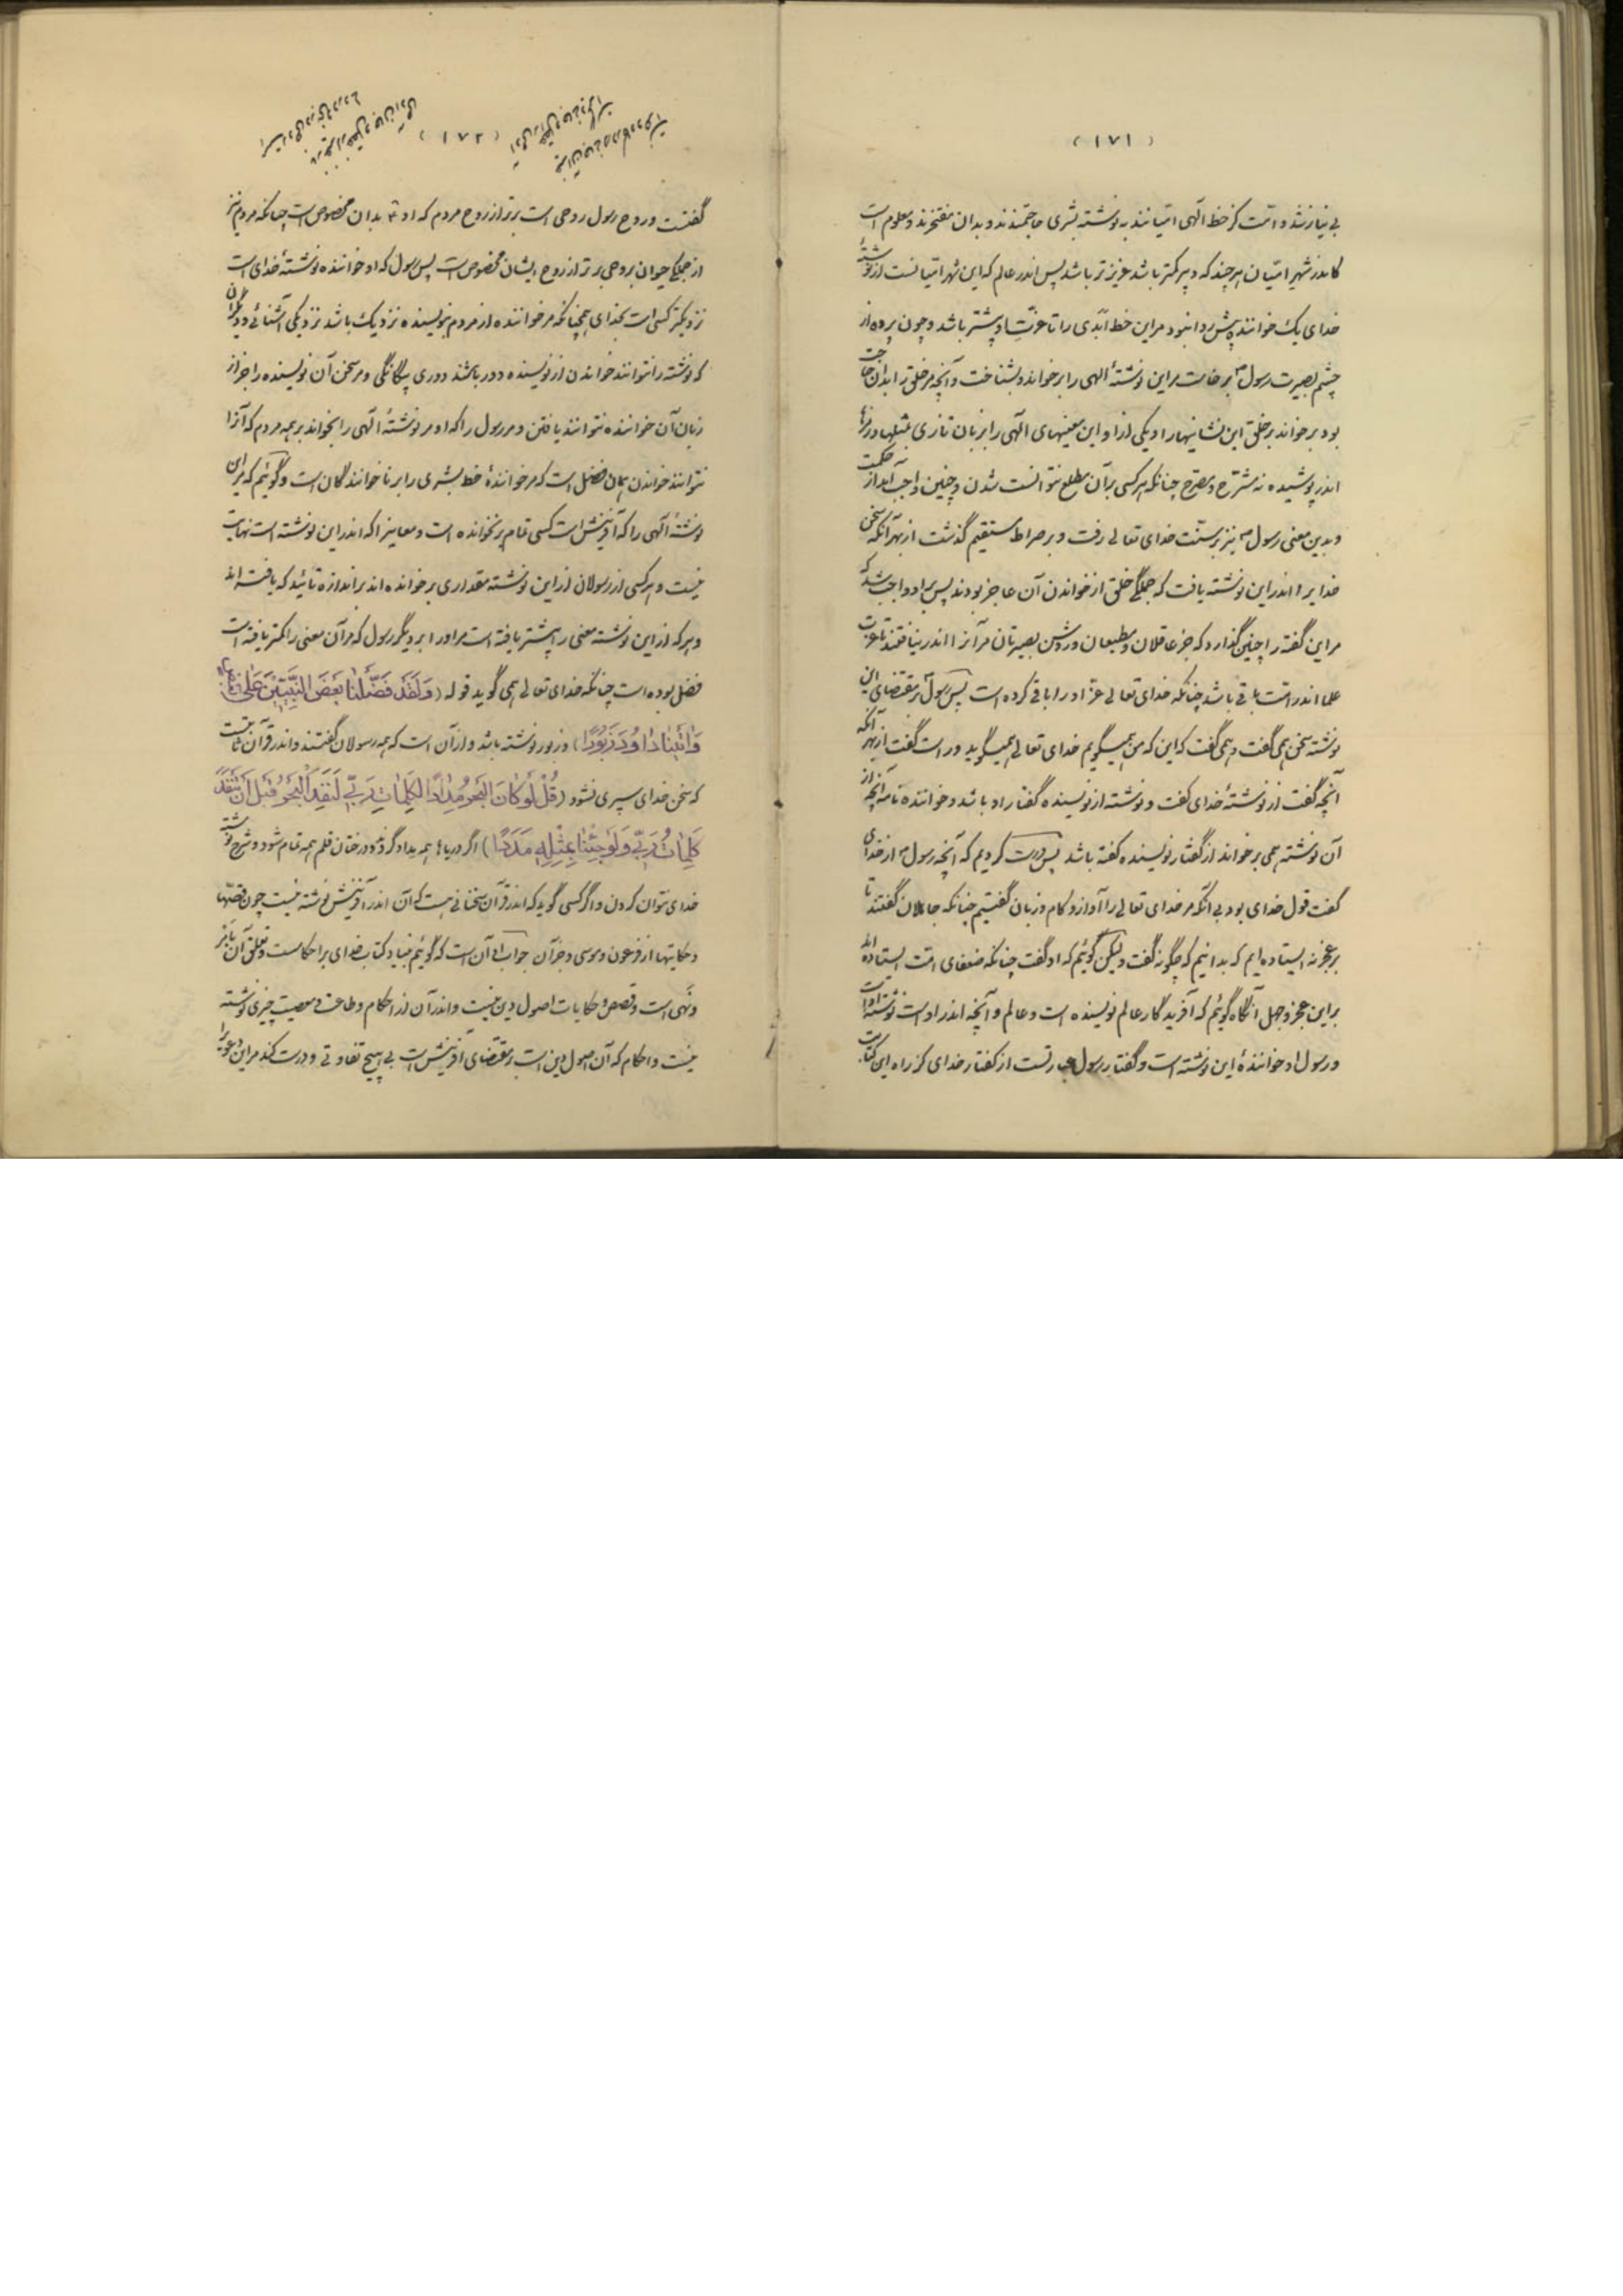 (۱۷۱)
بی نیازند و امّت کز خط الهی امّیانند به نوشته بشری حاجتمندند و بدان مفتخرند و معلوم است
کاندر شهر امّیان هر چند که دبیر کمتر باشد عزیز تر باشد پس اندر عالم که این شهر امّیانست از نوشتهٔ
خدای یک خواننده پیش روا نبود مر این خط ابدی را تا عزّت او بیشتر باشد و چون پرده از
چشم بصیرت رسول برخاست مر این نوشتهٔ الهی را برخواند و بشناخت و آنچه مر خلق را بدان حاجت
بود بر خواند بر خلق این نشانیها را و یکی از او این معنیهای الهی را بزبان تازی بمثلها و رمزها
اندر پوشیده نه مشرّح و مصرّح چنانکه هر کسی بر آن مطلع نتوانست شدن و چنین واجب آمد از حکمت
و بدین معنی رسول نیز بر سنّت خدای تعالی رفت و بر صراط مستقیم گذشت از بهر آنکه سخن
خدایرا اندر این نوشته یافت که جملگی خلق از خواندن آن عاجز بودند پس بر او واجب شد که
مر این گفته را چنین گذارد که جز عاقلان و مطیعان و روشن بصیرتان مر آنرا اندر نیافتند تا عزت
علما اندر امّت باقی باشد چنانکه خدای تعالی عزّ او را باقی کرده است پس رسول بر مقتضای این
نوشته سخن همی گفت و همی گفت که این که من همیگویم خدای تعالی همیگوید و راست گفت از بهر آنکه
آنچه گفت از نوشتهٔ خدای گفت و نوشته از نویسنده گفتار او باشد و خواننده نامه آنچه از
آن نوشته همی برخواند از گفتار نویسنده گفته باشد پس درست کردیم که آنچه رسول از خدای
گفت قول خدای بود بی آنکه مر خدای تعالی را آواز و کام و زبان گفتیم چنانکه جاهلان گفتند تا
بر عجز نه ایستاده ایم که بدانیم که چگونه گفت ولیکن گوئیم که او گفت چنانکه ضعفای امّت ایستاده اند
بر این عجز و جهل آنگاه گوئیم که آفریدگار عالم نویسنده است و عالم و آنچه اندر اوست نوشتهٔ اوست
و رسول او خوانندهٔ این نوشته است و گفتار رسول عبارتست از گفتار خدای کز راه این کتابت
(۱۷۲)
گفتست و روح رسول روحی است برتر از روح مردم که او بدان مخصوص است چنانکه مردم نیز
از جملگی حیوان بروحی برتر از روح ایشان مخصوص است پس رسول که او خواننده نوشتهٔ خدای است
نزدیکتر کسی است بخدای همچنانکه مر خواننده از مردم بنویسنده نزدیک باشد نزدیکی آشنائی و دیگران
که نوشته را نتوانند خواندن از نویسنده دور باشند دوری بیگانگی و مر سخن آن نویسنده را جز از
زبان آن خواننده نتوانند یافتن و مر رسول را که او مر نوشتهٔ الهی را بخواند بر همه مردم که آنرا
نتوانند خواندن همان فضل است که مر خوانندهٔ خط بشری را بر ناخوانندگان است و گوئیم که مر این
نوشتهٔ الهی را که آفرینش است کسی تمام بر نخوانده است و معانیرا که اندر این نوشته است نهایت
نیست و هر کسی از رسولان از این نوشته مقداری برخوانده اند بر اندازه تائید که یافته اند
و هر که از این نوشته معنی را بیشتر یافته است مر او را بر دیگر رسول که مر آن معنی را کمتر یافته است
فضل بوده است چنانکه خدای تعالی همی گوید قوله (وَلَقَدْ فَضَّلْنَا بَعْضَ النَّبِيِّينَ عَلَىٰ بَعْضٍ
وَآتَيْنَا دَاوُودَ زَبُورًا) و زبور نوشته باشد و از آن است که همه رسولان گفتند و اندر قرآن ثبتست
که سخن خدای سپری نشود (قُلْ لَوْ كَانَ الْبَحْرُ مِدَادًا لِكَلِمَاتِ رَبِّي لَنَفِدَ الْبَحْرُ قَبْلَ أَنْ تَنْفَدَ
كَلِمَاتُ رَبِّي وَلَوْ جِئْنَا بِمِثْلِهِ مَدَدًا) اگر دریاها همه مداد گردد و درختان قلم همه تمام شود و شرح نوشته
خدای نتوان کردن و اگر کسی گوید که اندر قرآن سخنانی هست که آن اندر آفرینش نوشته نیست چون قصّها
و حکایتها از فرعون و موسی و جز آن جواب او آن است که گوئیم بنیاد کتاب خدای بر احکامست و تعلق آن بامر
و نهی است و قصص و حکایات اصول دین نیست و اندر آن از احکام و طاعت و معصیت چیزی نوشته
نیست و احکام که آن اصول دین است بر مقتضای آفرینش است بی هیچ تفاوتی و درست کند مر این دعوی را